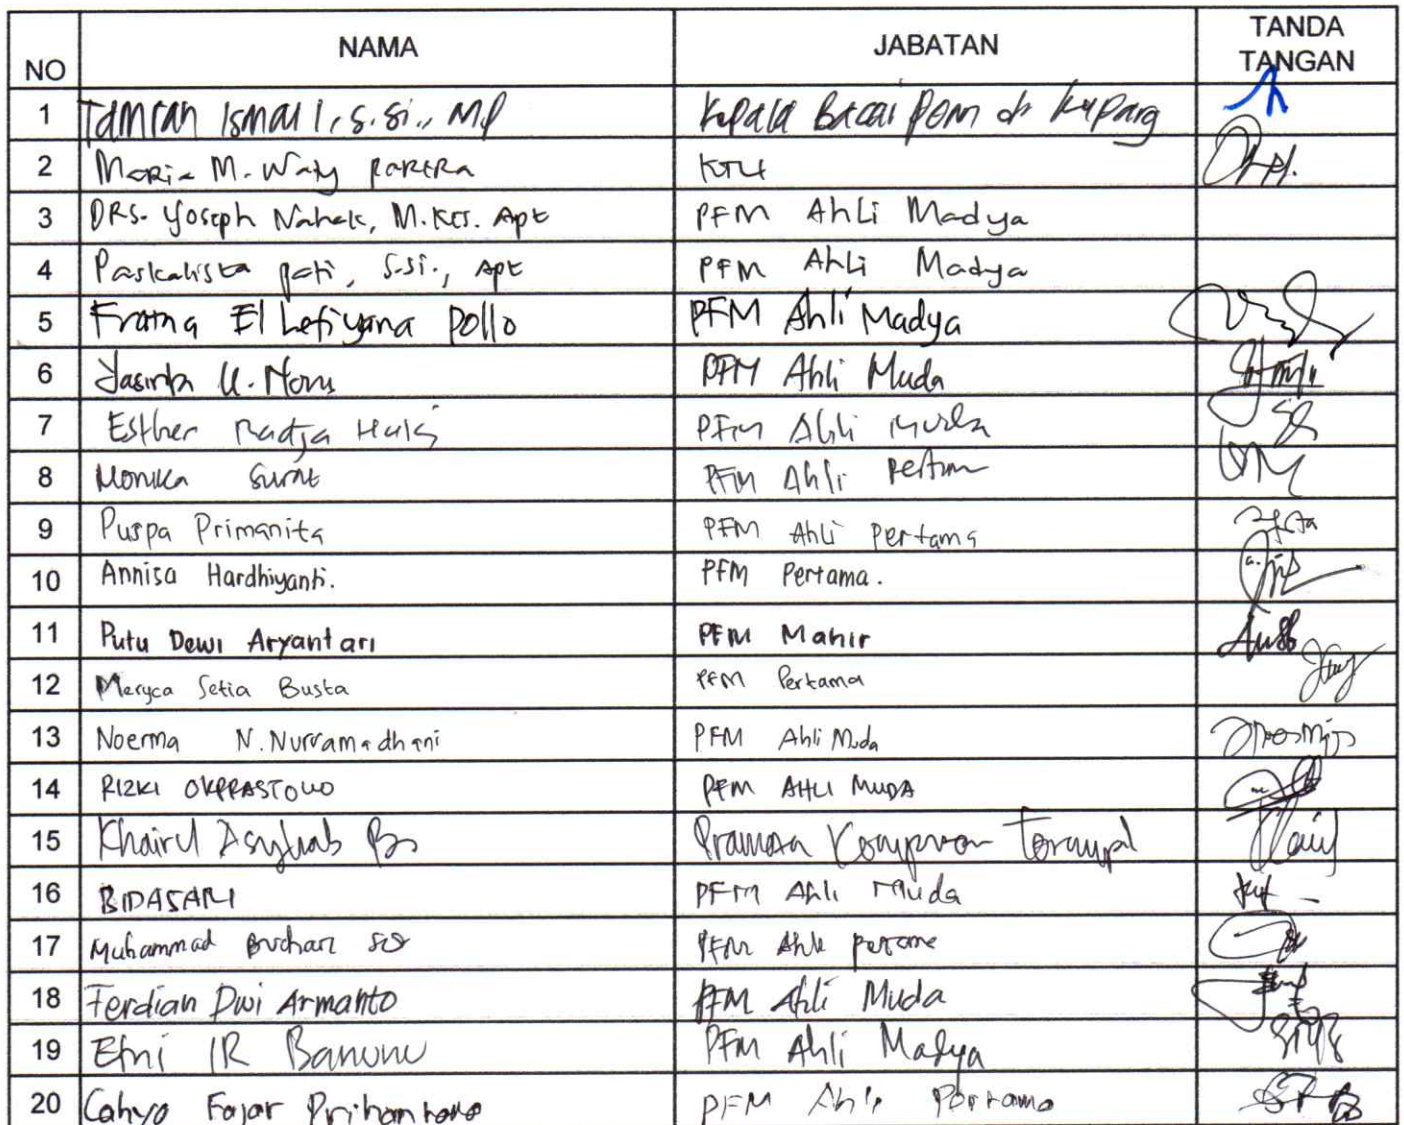 NO NAMA JABATAN TANDA TANGAN
1 Tamran Ismail, S.Si., MP Kepala Balai POM di Kupang
2 Maria M. Waty Parera KTU
3 DRS. Yoseph Nahak, M.Kes. Apt PFM Ahli Madya
4 Paskalista Pati, S.Si., Apt PFM Ahli Madya
5 Fratna El Lefiyana Pollo PFM Ahli Madya
6 Yasinta U. PFM Ahli Muda
7 Esther Radja PFM Ahli Muda
8 Monika Surat PFM Ahli Pertama
9 Puspa Primanita PFM Ahli Pertama
10 Annisa Hardhiyanti. PFM Pertama.
11 Putu Dewi Aryantari PFM Mahir
12 Meryca Setia Busta PFM Pertama
13 Noerma N. Nurramadhani PFM Ahli Muda
14 RIZKI OKPRASTOWO PFM AHLI MUDA
15 Khairul Asyhab Pramusaji
16 BIDASARI PFM Ahli Muda
17 Muhammad Buchari PFM Ahli Pertama
18 Ferdian Dwi Armanto PFM Ahli Muda
19 Erni IR Banunu PFM Ahli Madya
20 Cahyo Fajar Prihantoro PFM Ahli Pertama